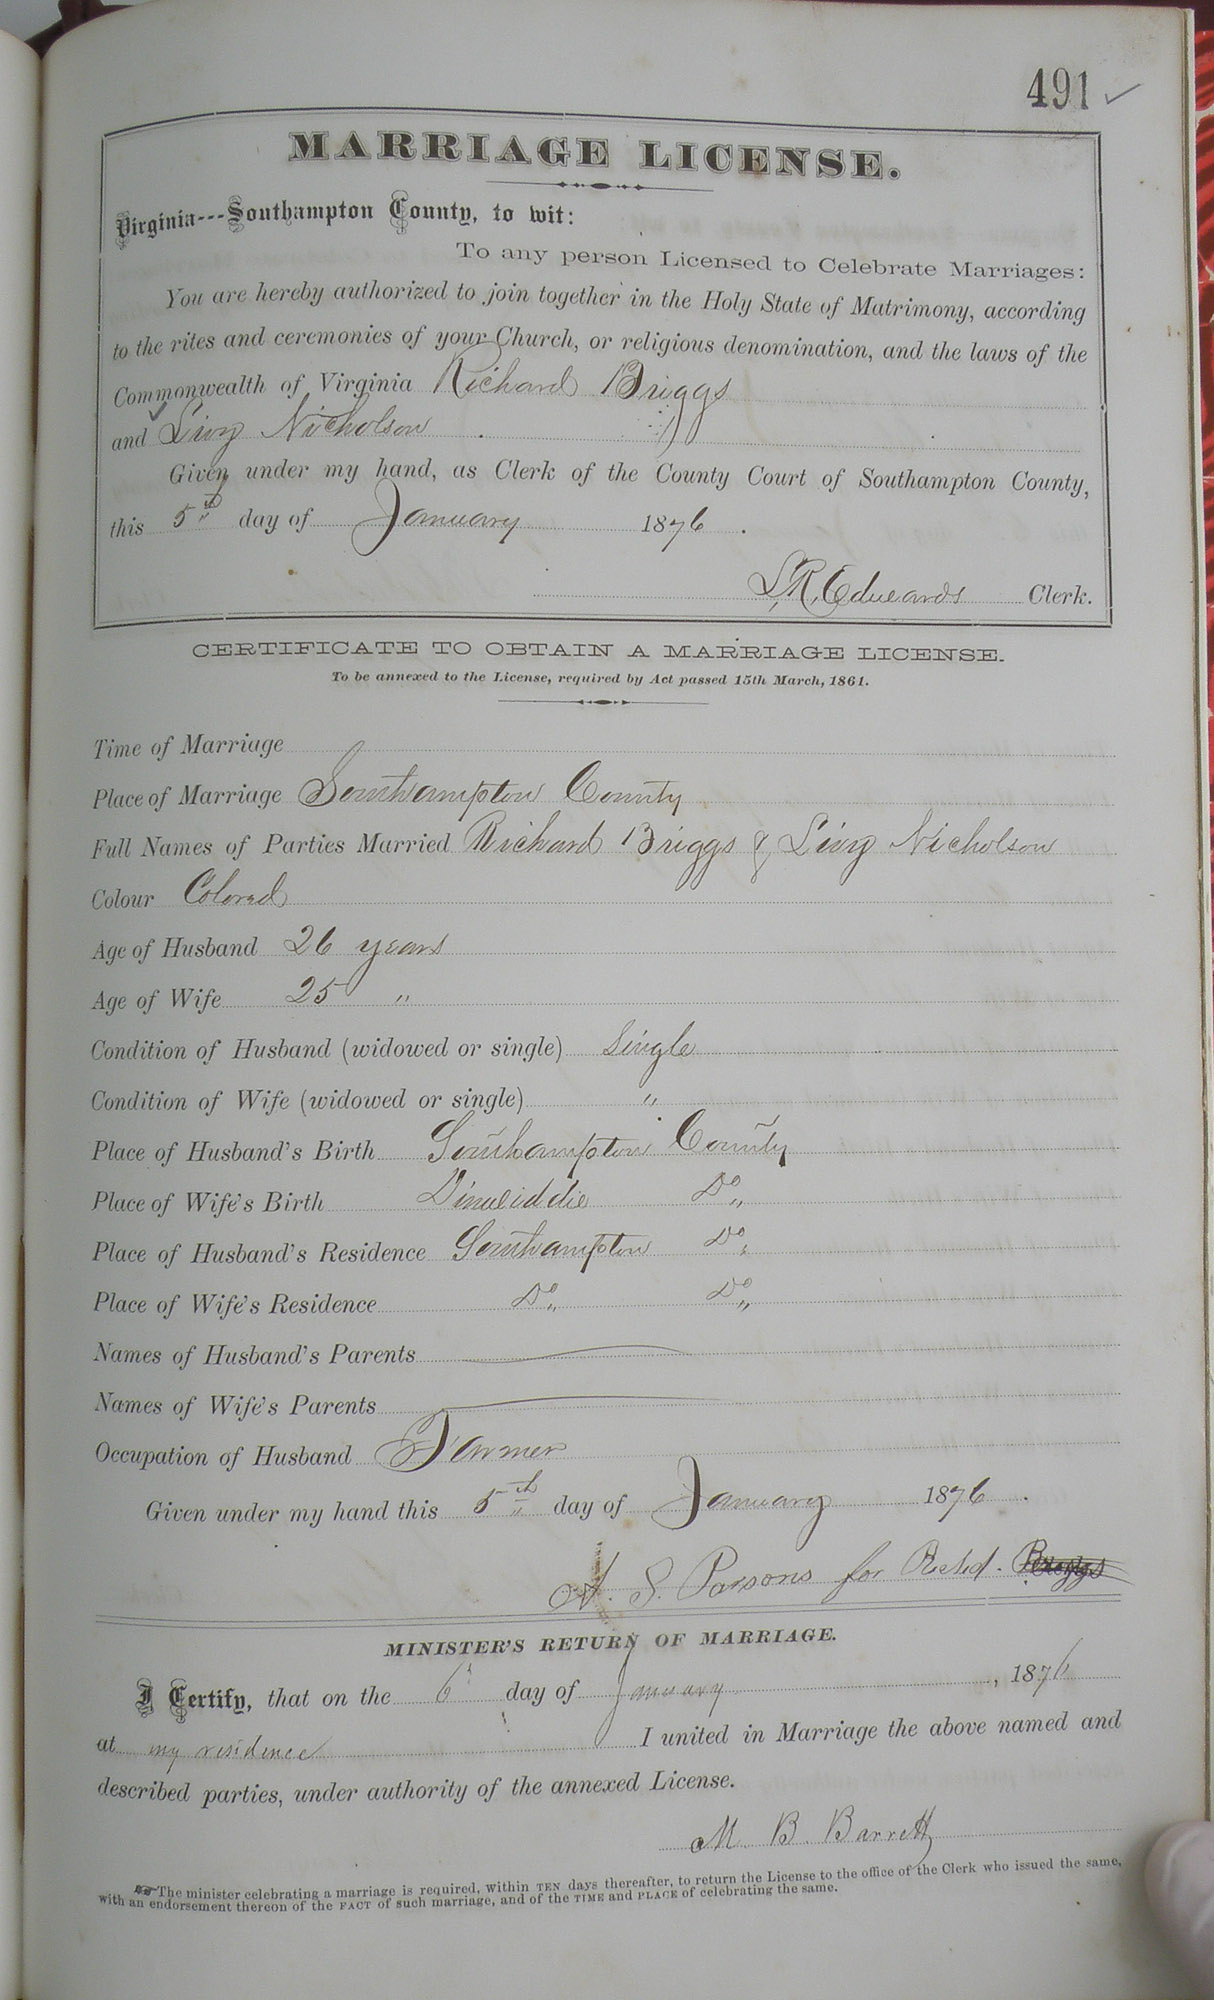 491 ✓
MARRIAGE LICENSE.
Virginia---Southampton County, to wit:
To any person Licensed to Celebrate Marriages:
You are hereby authorized to join together in the Holy State of Matrimony, according
to the rites and ceremonies of your Church, or religious denomination, and the laws of the
Commonwealth of Virginia Richard Briggs
and Livy Nicholson
Given under my hand, as Clerk of the County Court of Southampton County,
this 5th day of January 1876.
L. R. Edwards Clerk.
CERTIFICATE TO OBTAIN A MARRIAGE LICENSE.
To be annexed to the License, required by Act passed 15th March, 1861.
Time of Marriage
Place of Marriage Southampton County
Full Names of Parties Married Richard Briggs & Livy Nicholson
Colour Colored
Age of Husband 26 years
Age of Wife 25 "
Condition of Husband (widowed or single) Single
Condition of Wife (widowed or single) "
Place of Husband's Birth Southampton County
Place of Wife's Birth Dinwiddie Do "
Place of Husband's Residence Southampton Do "
Place of Wife's Residence Do " Do "
Names of Husband's Parents
Names of Wife's Parents
Occupation of Husband Farmer
Given under my hand this 5th day of January 1876.
A. S. Parsons for Richd. Briggs
MINISTER'S RETURN OF MARRIAGE.
I Certify, that on the 6 day of January, 1876
at my residence I united in Marriage the above named and
described parties, under authority of the annexed License.
M B. Barrett
The minister celebrating a marriage is required, within TEN days thereafter, to return the License to the office of the Clerk who issued the same,
with an endorsement thereon of the FACT of such marriage, and of the TIME and PLACE of celebrating the same.